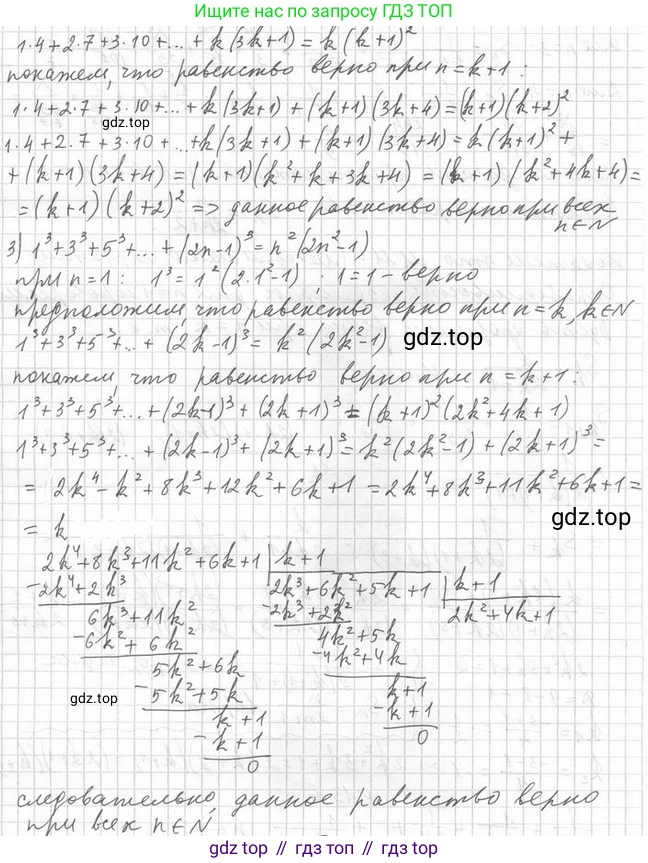 Ищите нас по запросу ГДЗ ТОП
1·4+2·7+3·10+...+k(3k+1)=k(k+1)²
покажем, что равенство верно при n=k+1:
1·4+2·7+3·10+...+k(3k+1)+(k+1)(3k+4)=(k+1)(k+2)²
gdz.top
1·4+2·7+3·10+...+k(3k+1)+(k+1)(3k+4)=k(k+1)²+
+(k+1)(3k+4)=(k+1)(k²+k+3k+4)=(k+1)(k²+4k+4)=
=(k+1)(k+2)² => данное равенство верно при всех
n∈N
3) 1³+3³+5³+...+(2n-1)³=n²(2n²-1)
при n=1: 1³=1²(2·1²-1) ; 1=1 - верно
предположим, что равенство верно при n=k, k∈N
1³+3³+5³+...+(2k-1)³=k²(2k²-1)
gdz.top
покажем, что равенство верно при n=k+1:
1³+3³+5³+...+(2k-1)³+(2k+1)³=(k+1)²(2k²+4k+1)
1³+3³+5³+...+(2k-1)³+(2k+1)³=k²(2k²-1)+(2k+1)³=
=2k⁴-k²+8k³+12k²+6k+1=2k⁴+8k³+11k²+6k+1=
gdz.top
=k
2k⁴+8k³+11k²+6k+1 | k+1
-2k⁴+2k³ 2k³+6k²+5k+1 | k+1
6k³+11k² -2k³+2k² 2k²+4k+1
-6k²+6k² 4k²+5k
5k²+6k -4k²+4k
gdz.top
-5k²+5k k+1
k+1 -k+1
-k+1 0
0
следовательно, данное равенство верно
при всех n∈N
gdz.top // gdz.top // gdz.top